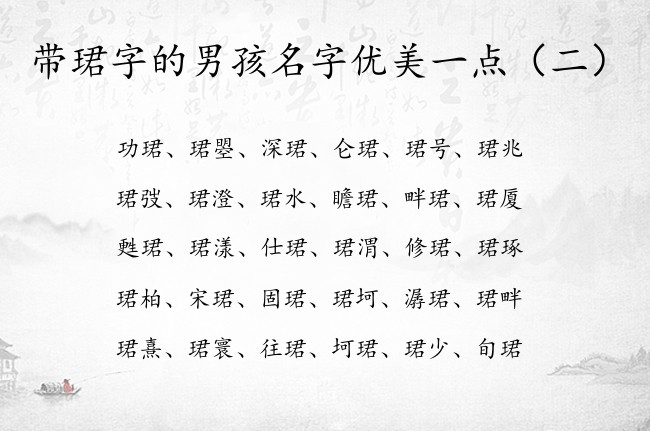 带珺字的男孩名字优美一点（二）
功珺、珺曌、深珺、仑珺、珺号、珺兆
珺弢、珺澄、珺水、瞻珺、畔珺、珺厦
甦珺、珺漾、仕珺、珺渭、修珺、珺琢
珺柏、宋珺、固珺、珺坷、潺珺、珺畔
珺熹、珺寰、往珺、坷珺、珺少、旬珺